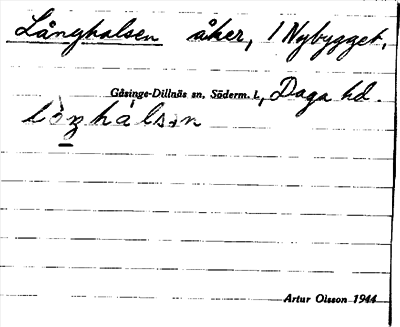 Långhalsen åker, / Nybygget,
Gåsinge-Dillnäs sn, Söderm. l., Daga hd.
Artur Olsson 1944